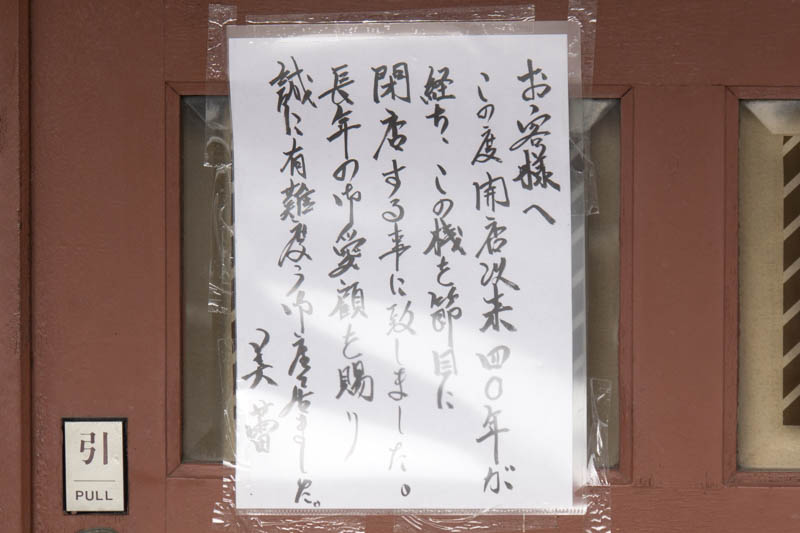 お客様へ
この度開店以来四〇年が
経ち、この機を節目に
閉店する事に致しました。
長年の御愛顧を賜り
誠に有難度う御座居ました。
美蕾
引
PULL